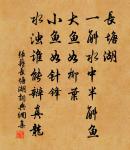 長塘湖
一斛水中半斛魚
大魚如柳葉
小魚如針鋒
水濁誰能辨真龍
張籍長塘湖詞典網